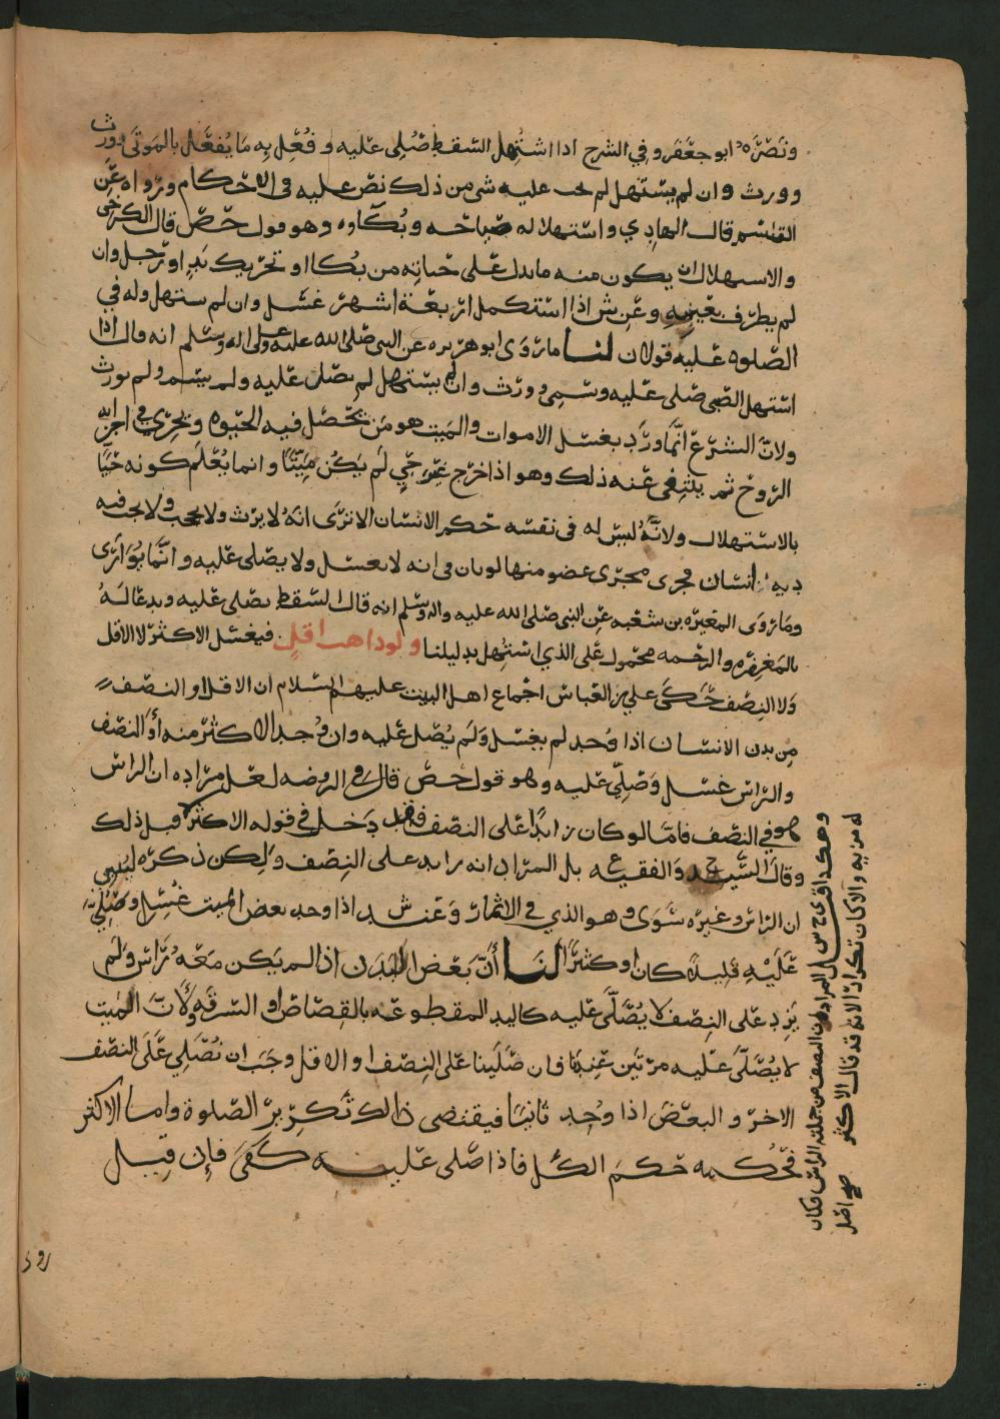 ونصره ابو جعفر وفي الشرح اذا استهل السقط صُلِى عليه وفُعِل بِه مَا يُفعَل بالمَوتَى وورث
وورث وان لم يستهل لم يجب عليه شي من ذلك نص عليه في الاحكام ورواه عَن
القاسم قال الهادِي واستهلاله صياحه وبُكاوه وهو قول حَصَ قال الكرخى
والاستهلال ان يكون منه ما يدل عَلى حياتِه من بُكاا او تحريك يَدٍ او رِجل وان
لم يطرف بعينِهِ وعَن ش اذا استكمل اربعة اشهر غسل وان لم يستهل وله في
الصلوه عليه قولان لنا ما رَوَى ابو هريره عن النبى صلى الله عليه وعلى اله وسلم انه قال اذا
استهل الصبى صلى عليه وسمِى وورث وان لم يستهل لم يصل عليه ولم يسم ولم يورث
ولان الشرع انما ورَد بغسل الاموات والمَيت هو مَن تحصُل فيه الحيوه وتجرِي في اجزايه
الروح ثم ينتفى عنه ذلك وهو اذا خرج غير حَيٍ لَم يَكُن مَيّتًا وانما يُعْلَم كونه حَيًّا
بالاستهلال ولانَّهُ ليس له في نفسه حكم الانسان الا ترَى انهُ لا يرث ولا يحجب ولا يجب فيه
دية انسان فجرى مجرى عضو منها لو بان في انه لا يغسل ولا يصلى عليه وانما يُوَارَى
ومَا روَى المغيره بن شعبه عَن النبى صلى الله عليه واله وسلم انه قال السقط يصلى عليه ويدعا لهُ
بالمَغفِره والرحمه محمول عَلى الذي استُهل بدليلنا ولو ذاهب اقل فيغسل الاكثر لا الاقل
وَلا النِصف حَكَى علي بن العَباس اجماع اهل البيت عليهم السلام ان الاقل او النصف
مِن بدن الانسان اذا وُجد لم يغسل وَلَم يُصَل عليه وان وُجد الاكثر منه أو النصف
والراس غسل وَصلِى عليه وهو قول حَصَ قال في الروضه لعل مرَاده ان الراس
هو في النصف فاما لو كان زايدًا على النصف فقد دَخل في قوله الاكثر قبل ذلك
وقال السيد ح والفقيه ع بل المرَاد انه زايد على النِصف وَلكن ذكره ليبين
ان الراس وغيره سَوَى وهو الذي في الاثمار وَعَن ش د اذا وجد بعض الميت غُسِل وصُلِّىَ
عَلَيْهِ قليلًا كان او كثيرًا لنَا أنّ بَعْض البَدَن اذا لم يَكن مَعَهُ رَاس وَلَم
يَزِد عَلى النِصف لا يُصَلَّى عليه كاليد المقطوعه بالقِصَاص او السرقه وَلأنّ الميت
لا يُصَلَّى عليه مرتَين عِندنا فان صَلَينا عَلى النِصف او الاقل وجَبَ ان نُصَلِي عَلَى النصف
الاخر والبعض اذا وُجِد ثانيًا فيقتضى ذالك تكرِير الصلوة واما الاكثر
فحُكمه حكم الكل فاذا صَلى عليه كفَى فإن قِيل
وهكذا المراد من النصف من جملته الراس فكان
له مزيه والا كان تكرارا لانه قد قال الاكثر صح اصل